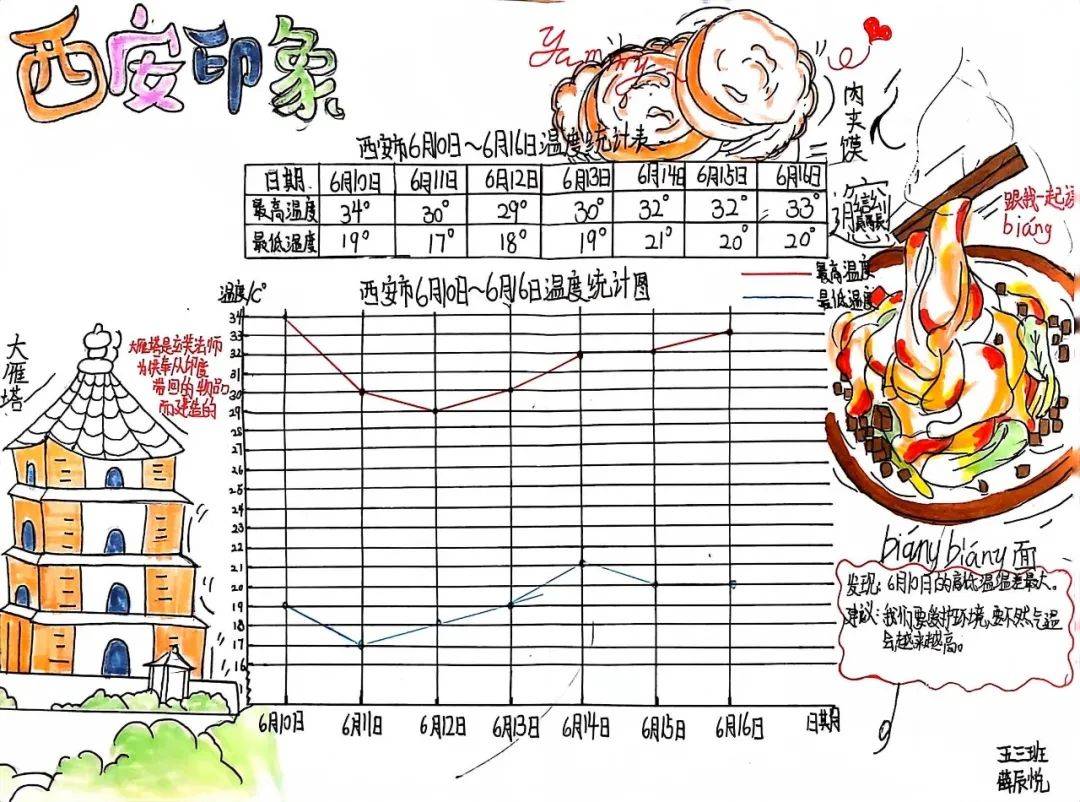 西安印象
Yummy
肉夹馍
西安市6月10日~6月16日温度统计表
日期 6月10日 6月11日 6月12日 6月13日 6月14日 6月15日 6月16日
最高温度 34° 30° 29° 30° 32° 32° 33°
最低温度 19° 17° 18° 19° 21° 20° 20°
跟我一起读
biáng
最高温度
最低温度
西安市6月10日~6月16日温度统计图
温度/C°
34
33
32
31
30
29
28
27
26
25
24
23
22
21
20
19
18
17
16
6月10日 6月11日 6月12日 6月13日 6月14日 6月15日 6月16日 日期
大雁塔
大雁塔是玄奘法师
为供奉从印度
带回的物品
而建造的
biángbiáng面
发现:6月10日的高低温温差最大。
建议:我们要爱护环境,要不然气温
会越来越高。
五三班
薛辰悦